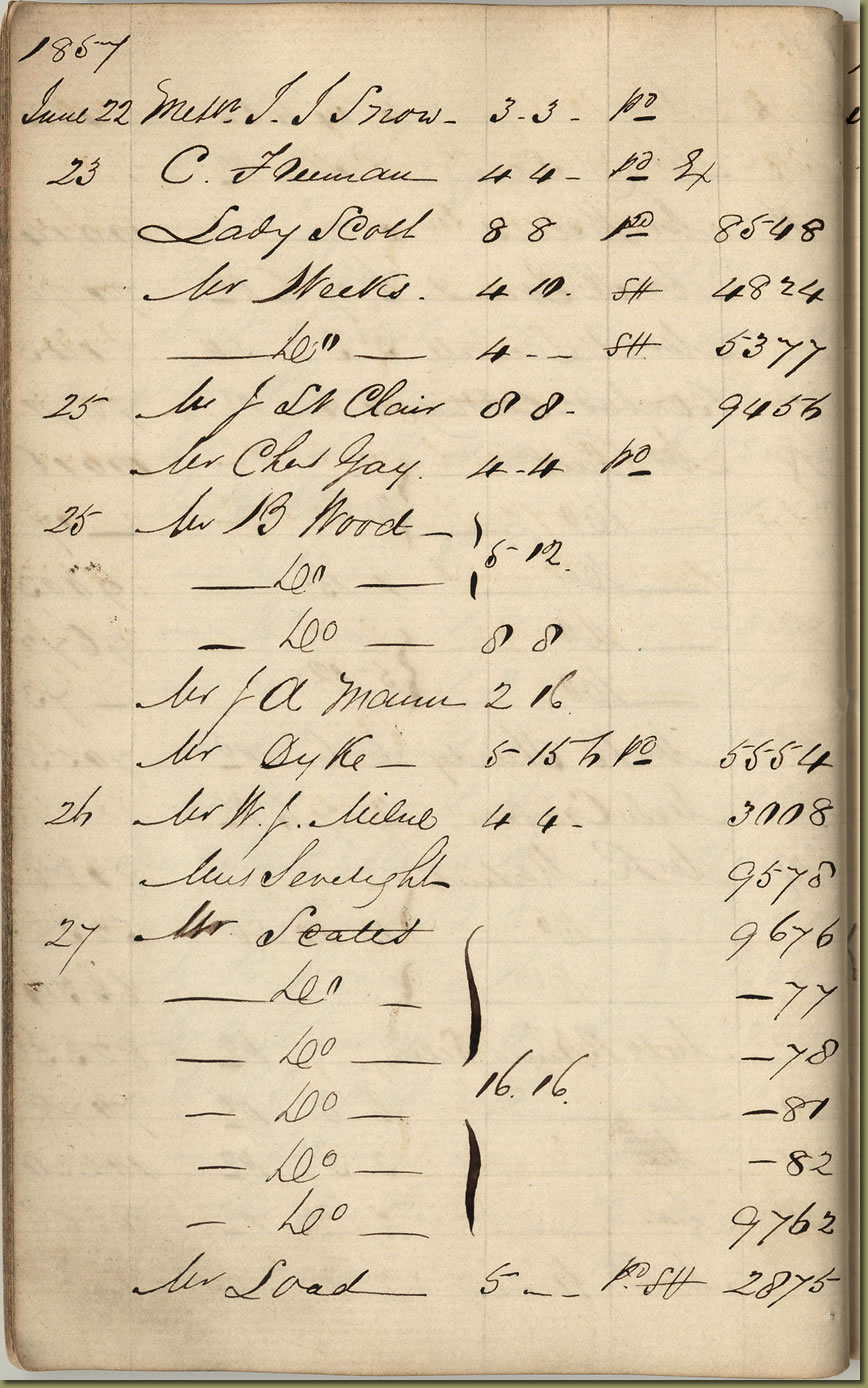 1857
June 22 Messrs. J. J Snow - 3-3- pd
23 C. Freeman 4 4 - pd Ex
Lady Scott 8 8 pd 8548
Mr Weeks. 4 10. SH 4824
— Do — 4 - - SH 5377
25 Mr J St Clair 8 8 - 9456
Mr Chas Gay. 4-4 pd
25 Mr B Wood — } 5 12.
— Do —
— Do — 8 8
Mr J A Mann 2 16
Mr Dyke — 5 15 6 pd 5554
26 Mr W. J. Milne 4 4 - 3008
Miss 9578
27 Mr. Scates 9676
— Do — -77
— Do — -78
— Do — 16. 16. -81
— Do — -82
— Do — 9762
Mr Load 5 - - pd SH 2875